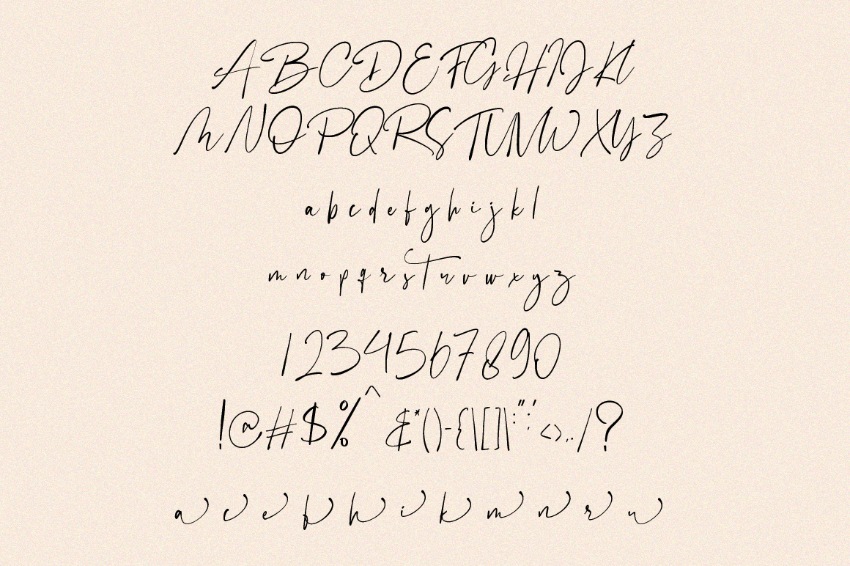 ABCDEFGHIJKL
MNOPQRSTUVWXYZ
abcdefghijkl
mnopqrstuvwxyz
1234567890
!@#$%^&*()-{}\[]|:"';<>,./?
a c e f h i k m n r u